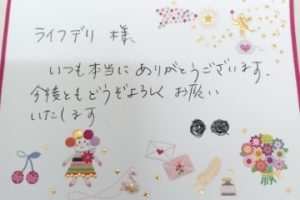 ライフデリ 様
いつも本当にありがとうございます.
今後ともどうぞよろしくお願い
いたします.